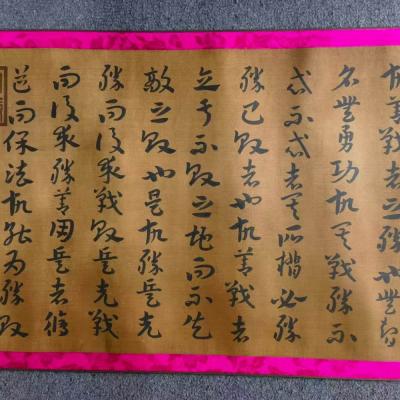 故善戰者之勝也無智
名無勇功故其戰勝不
忒不忒者其所措必勝
勝已敗者也故善戰者
立于不敗之地而不失
敵之敗也是故勝兵先
勝而後求戰敗兵先戰
而後求勝善用兵者修
道而保法故能為勝敗